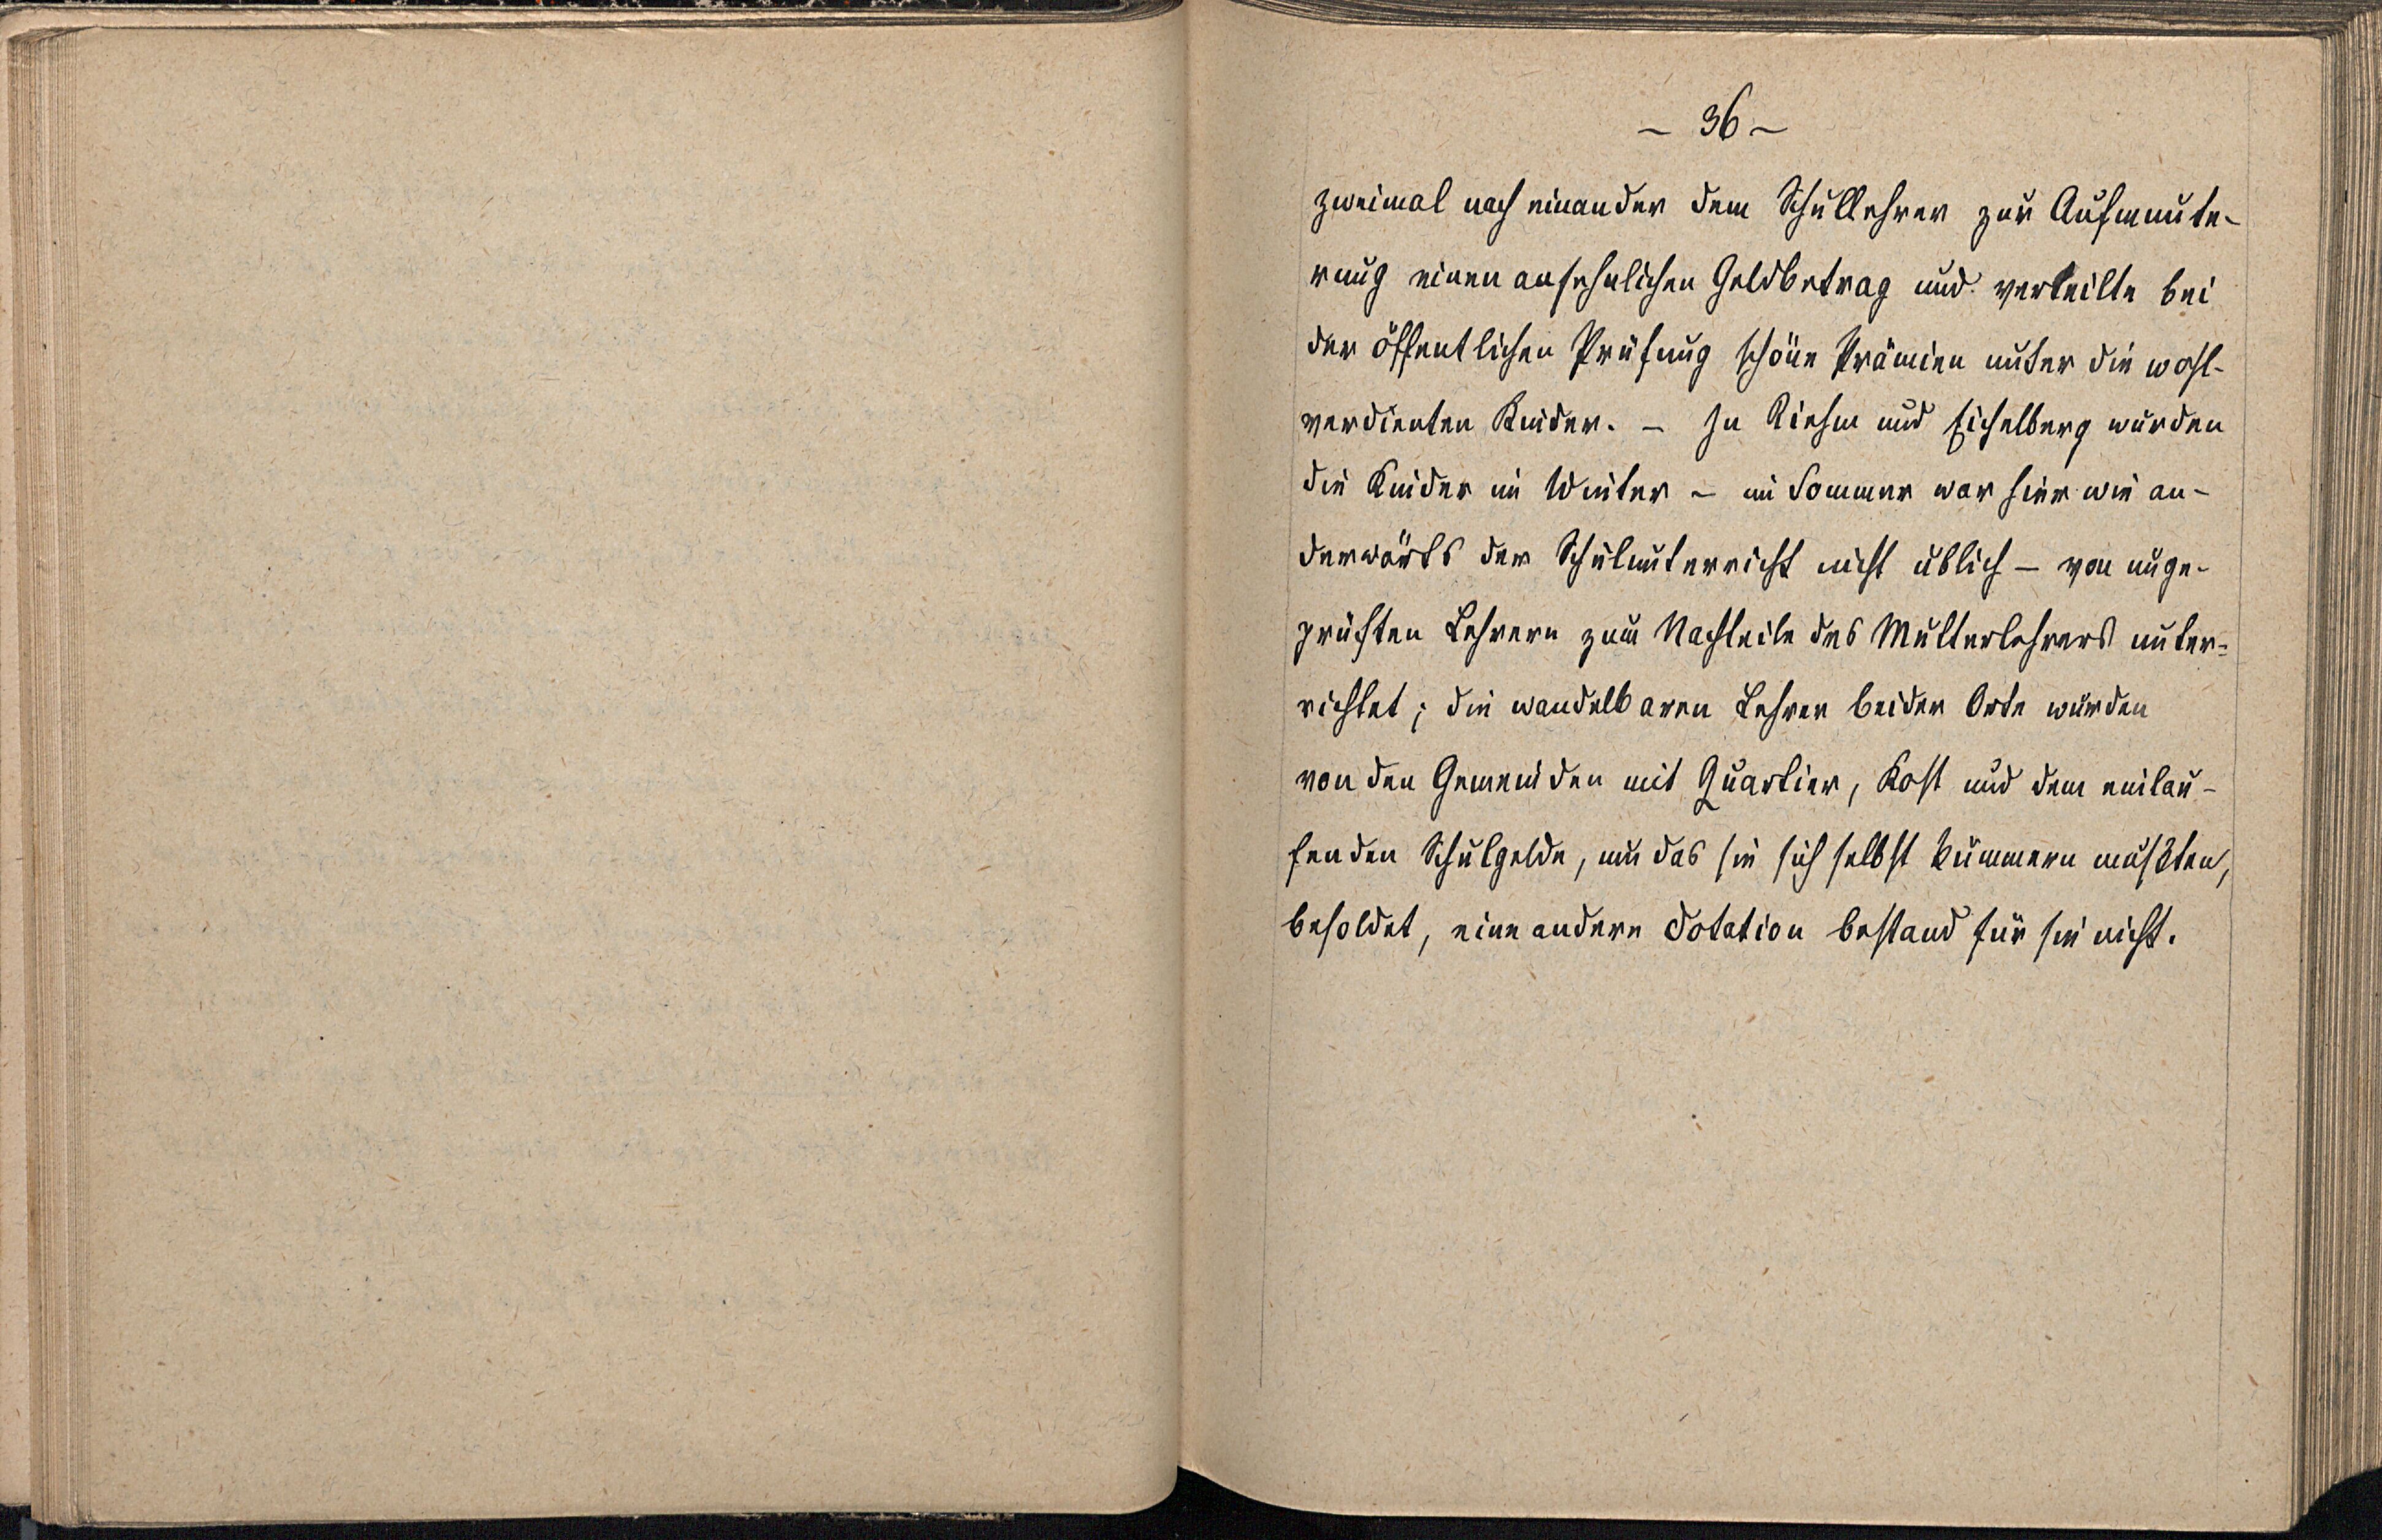 – 36 –
zweimal nach einander dem Schullehrer zur Aufmunte-
rung einen ansehnlichen Geldbetrag und verteilte bei
der öffentlichen Prüfung schöne Prämien unter die wohl-
verdienten Kinder. – In Riehm und Eichelberg wurden
die Kinder im Winter – im Sommer war hier wie an-
derwärts der Schulunterricht nicht üblich – von unge-
prüften Lehrern zum Nachteile des Mutterlehrers unter-
richtet; die wandelbaren Lehrer beider Orte wurden
von den Gemeinden mit Quartier, Kost und dem einlau-
fenden Schulgelde, um das sie sich selbst kümmern mußten,
besoldet, eine andere Dotation bestand für sie nicht.